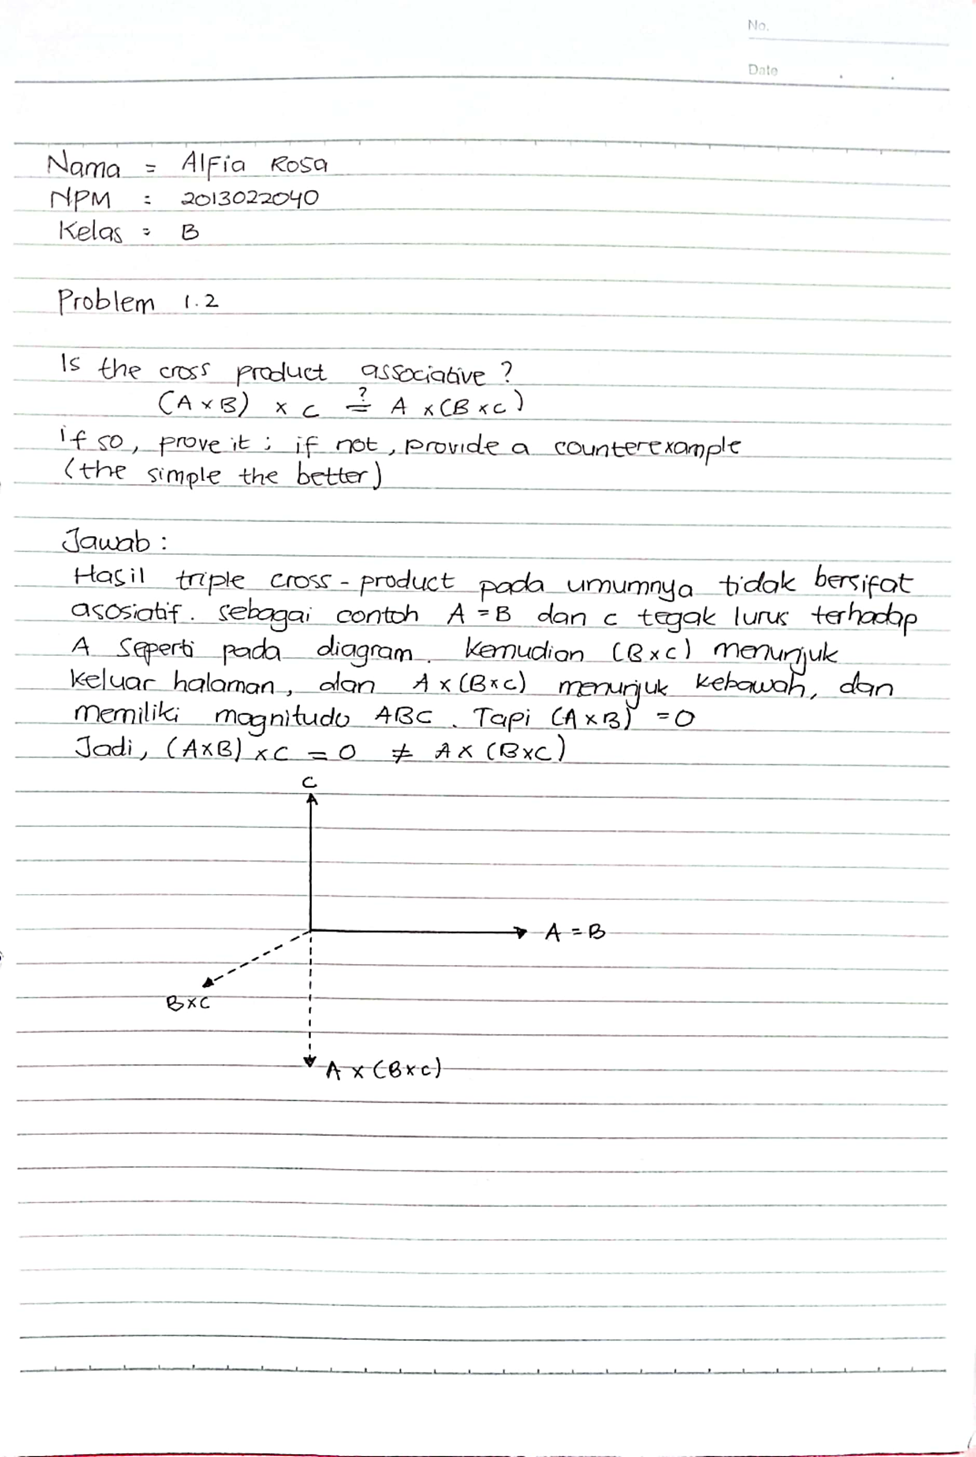 No.
Date
Nama = Alfia Rosa
NPM : 2013022040
Kelas : B
Problem 1.2
Is the cross product associative ?
(A × B) × C ≟ A × (B × C)
if so, prove it ; if not, provide a counterexample
(the simple the better)
Jawab :
Hasil triple cross-product pada umumnya tidak bersifat
asosiatif. sebagai contoh A = B dan C tegak lurus terhadap
A seperti pada diagram. Kemudian (B × C) menunjuk
keluar halaman, dan A × (B × C) menunjuk kebawah, dan
memiliki magnitudo ABC. Tapi (A × B) = 0
Jadi, (A×B) × C = 0 ≠ A × (B×C)
C
A = B
B×C
A × (B×C)